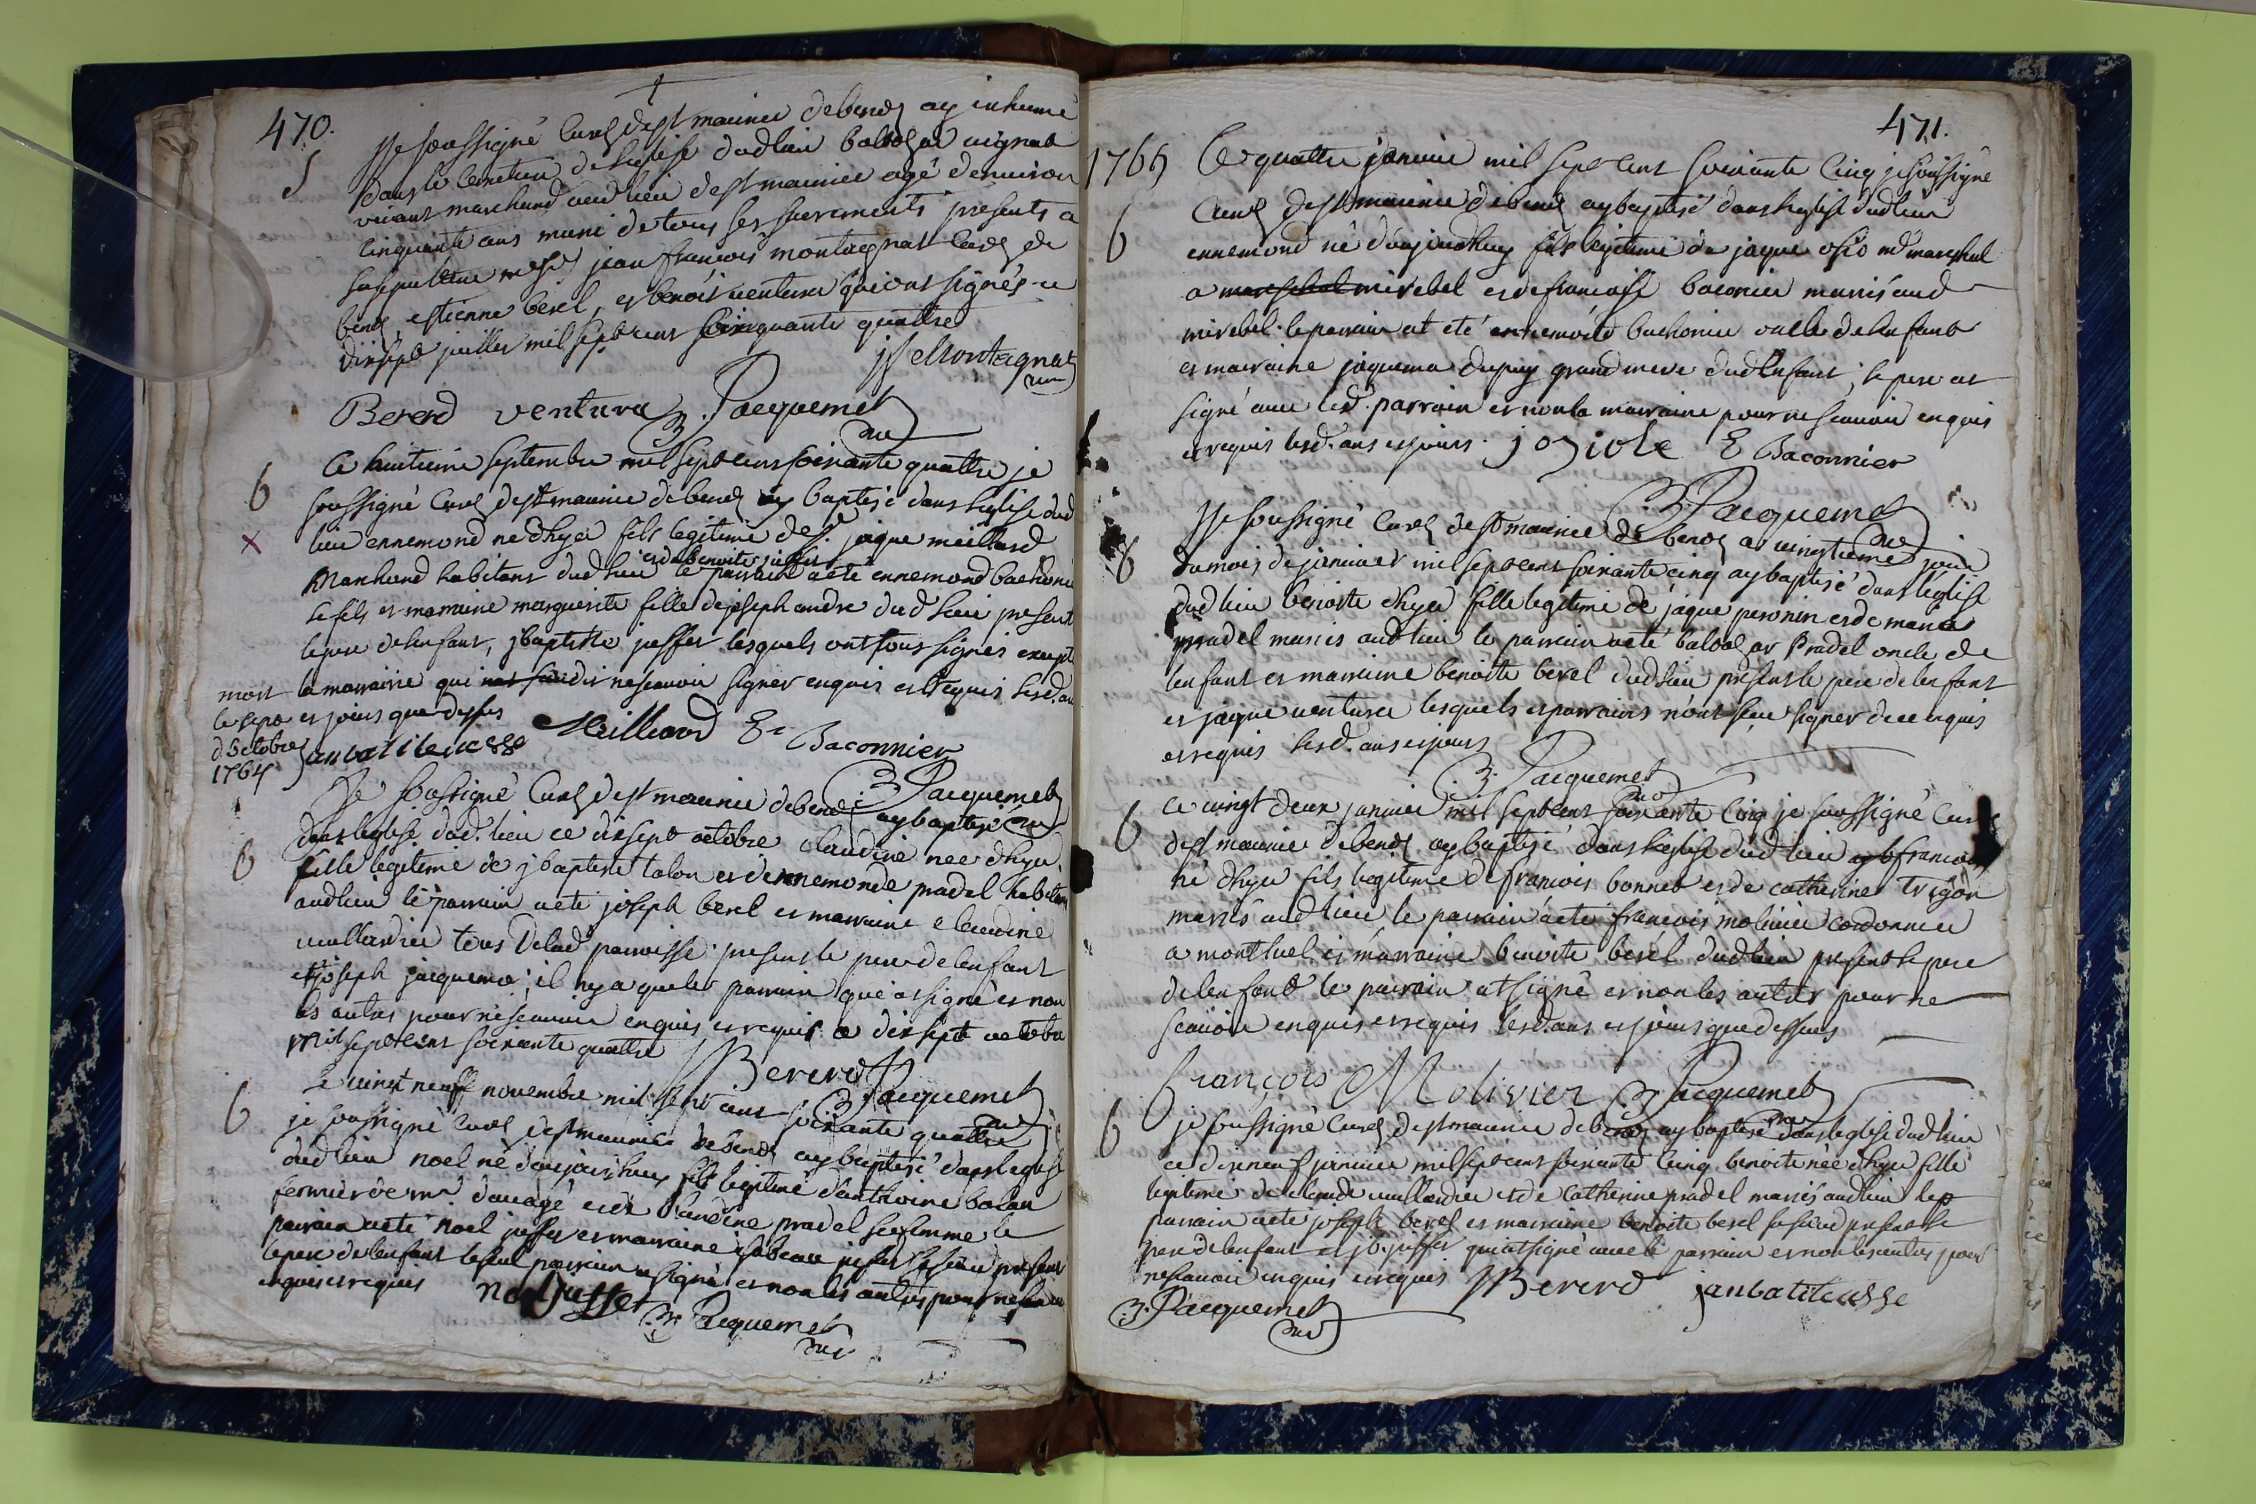 470.
S
Je soussigné Curé de st maurice de benos ay inhumé
dans le Cimetiere de l'eglise dudlieu baltazar
vivant marchand aud lieu de st maurice agé denviron
cinquante ans muni de tous ses sacrements presents a
sa sepulture jean francois montagnat Curé de
estienne bérel, et benoit ventura qui ont signés ce
dixsept juillet mil sept cent quattre
jf Montagnat
Bererd ventura B. Jacquemet
curé
6 Ce huitieme septembre mil sept cens soixante quattre je
soussigné Curé de st maurice de benos ay baptisé dans leglise dud
X lieu ennemond né dhyer fils legitime de sr. jaque meillard
et de benoite jusser
Marchand habitant dud lieu le parrain a eté ennemond
le fils et marraine marguerite fille de joseph andre dud lieu present
le pere de lenfant, jbaptiste jusser lesquels ont tous signés excepté
mort la marraine qui dit ne scavoir signer enquis et requis lesd. an
le sept et jours que dessus
d 8ctobre Meilliard E. Baconnier
1764
B Jacquemet
Je soussigné Curé de st maurice de benos ay baptisé
dans leglise dud. lieu ce dixsept octobre claudine née dhyer
6 fille legitime de jbaptiste talon et dennemonde pradel habitans
audlieu le parrain a eté joseph berel et marraine claudine
tous delad. paroisse present le pere de lenfant
et joseph jacquemo; il ny a que le parrain que a signé et non
les autres pour ne scavoir enquis et requis ce dix sept octobre
mil sept cent soixante quattre
Bererd B Jacquemet
Le vingt neuff novembre mil sept cent soixante quattre
6 je soussigné Curé de st maurice de benos ay baptisé dans leglise
dud lieu noel né daujourdhuy fils legitime danthoine balan
fermier de mr. et de claudine pradel sa femme le
parrain a eté noel jusser et marraine isabeau jusser present
le pere de lenfant le seul parrain a signé et non les autres pour ne scavoir
enquis et requis
noel jusser
B. Jacquemet
curé
471.
1765 Ce quattre janvier mil sept cent soixante Cinq je soussigné
Curé de st maurice de benos ay baptisé dans leglise dud lieu
6 ennemond né daujourdhuy fils legitime de jaque osio md marechal
a mirebel et de francoise baconier mariés aud
mirebel. le parrain at eté ennemond bachonier oncle de lenfant
et marraine jaquema dupuy grand mere dud Enfant; le pere at
signé avec led. parrain et non la marraine pour ne scavoir enquis
et requis lesd. ans et jours. joziole E Baconnier
B. Jacquemet
Je soussigné Curé de st maurice de benos ce vingtieme jour
6 du mois de janvier mil sept cent soixante cinq ay baptisé dans leglise
dud lieu benoite dhyer fille legitime de jaque peronin et de
pradel mariés aud lieu le parrain a eté baltazar Pradel oncle de
lenfant et marraine benoite berel dud lieu present le pere de lenfant
et jaque ventura lesquels et parrains n'ont sceu signer de ce enquis
et requis lesd. ans et jours
B. Jacquemet
ce vingt deux janvier mil sept cent soixante Cinq je soussigné Curé
6 de st maurice de benos ay baptisé dans leglise dud lieu francois
né dhyer fils legitime de francois bonnet et de catherine trigon
mariés aud lieu le parrain a eté francois molivier cordonnier
a montluel et marraine benoite berel dud lieu present le pere
de lenfant le parrain at signé et non les autres pour ne
scavoir enquis et requis lesd. ans et jours que dessus
françois Molivier B Jacquemet
6 je soussigné Curé de st maurice de benos ay baptisé dans leglise dud lieu
ce dixneuf janvier mil sept cent soixante cinq benoite née dhyer fille
legitime de claude et de Catherine pradel mariés aud lieu le
parrain a eté joseph berel et marraine benoite berel present le
pere de lenfant et jb. jusser qui at signé avec le parrain et non les autres pour
ne scavoir enquis et requis Bererd
B. Jacquemet
curé